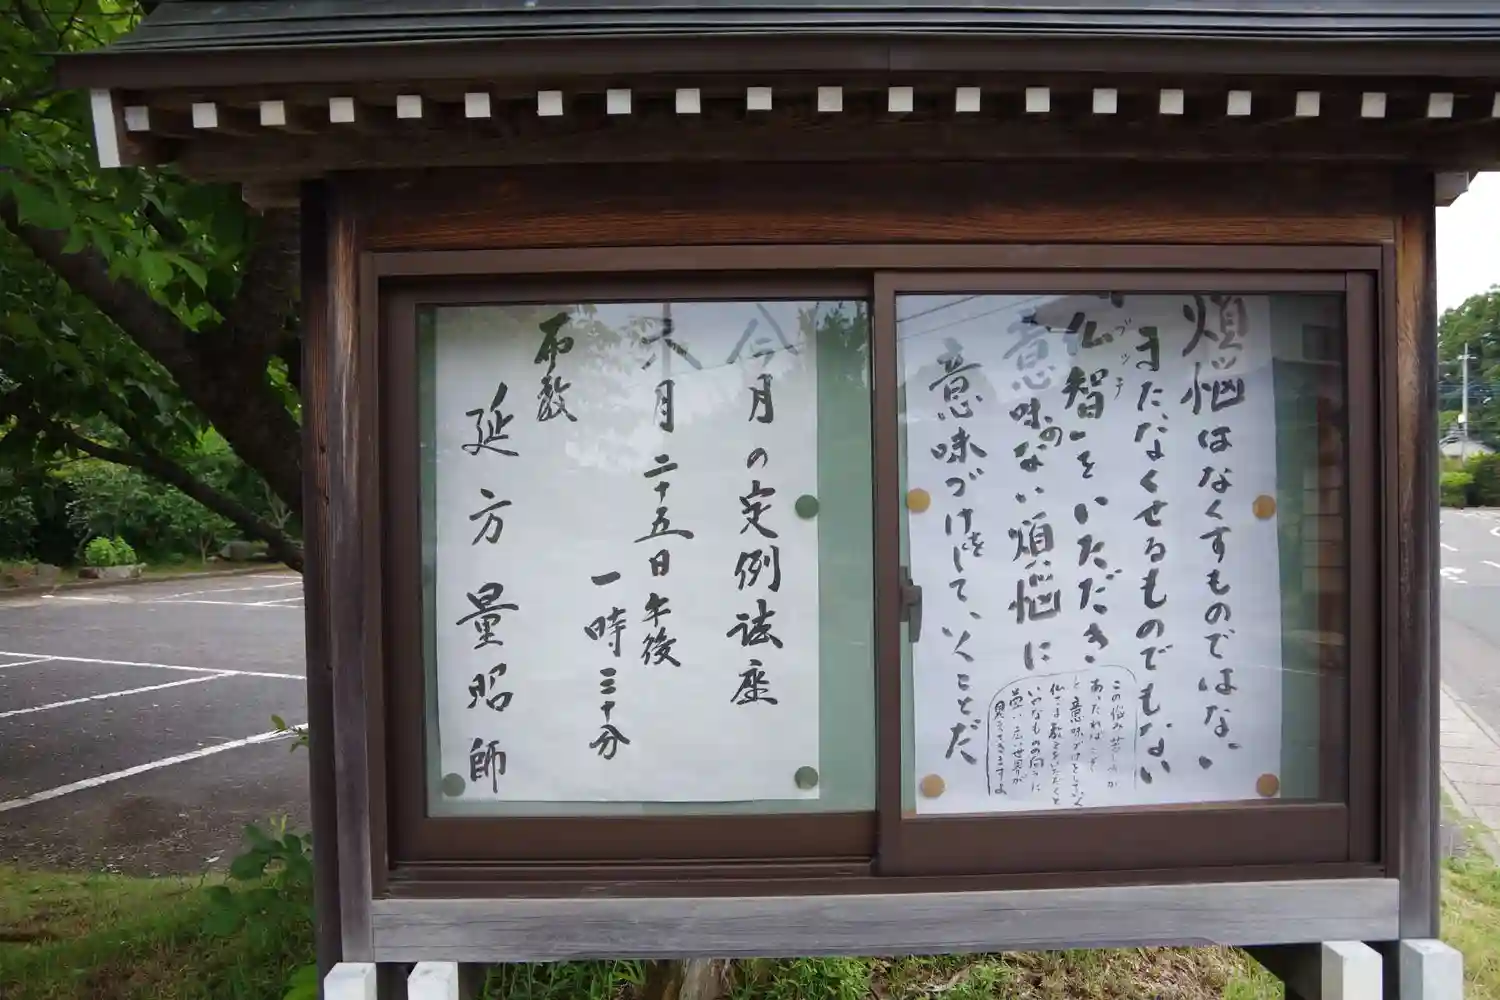 煩悩はなくすものではない、
またなくせるものでもない
仏智をいただき
ブッチ
意味のない煩悩に
意味づけをして、いくことだ
この悩み苦しみが
あったればこそ
と意味づけをしていく
仏さま教えをいただくと
いいなもの向うに
堂い広い世界が
見えてきますよ
今月の定例法座
本月二十五日午後
一時三十分
布教
延方量昭師